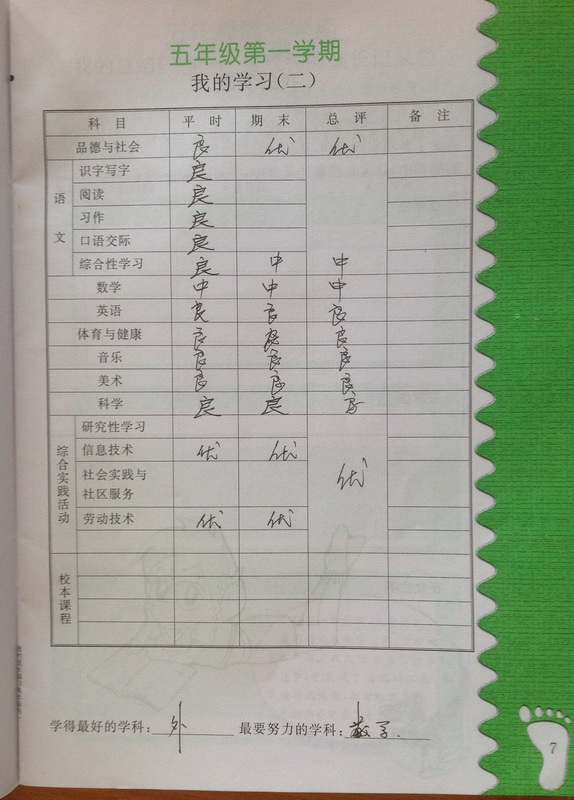 五年级第一学期
我的学习(二)
科目 平时 期末 总评 备注
品德与社会 良 优 优
语文
识字写字 良
阅读 良
习作 良
口语交际 良
综合性学习 良 中 中
数学 中 中 中
英语 良 良 良
体育与健康 良 良 良
音乐 良 良 良
美术 良 良 良
科学 良 良 良
综合实践活动
研究性学习
信息技术 优 优
社会实践与
社区服务
优
劳动技术 优 优
校本课程
学得最好的学科: 外 最要努力的学科: 数学.
7